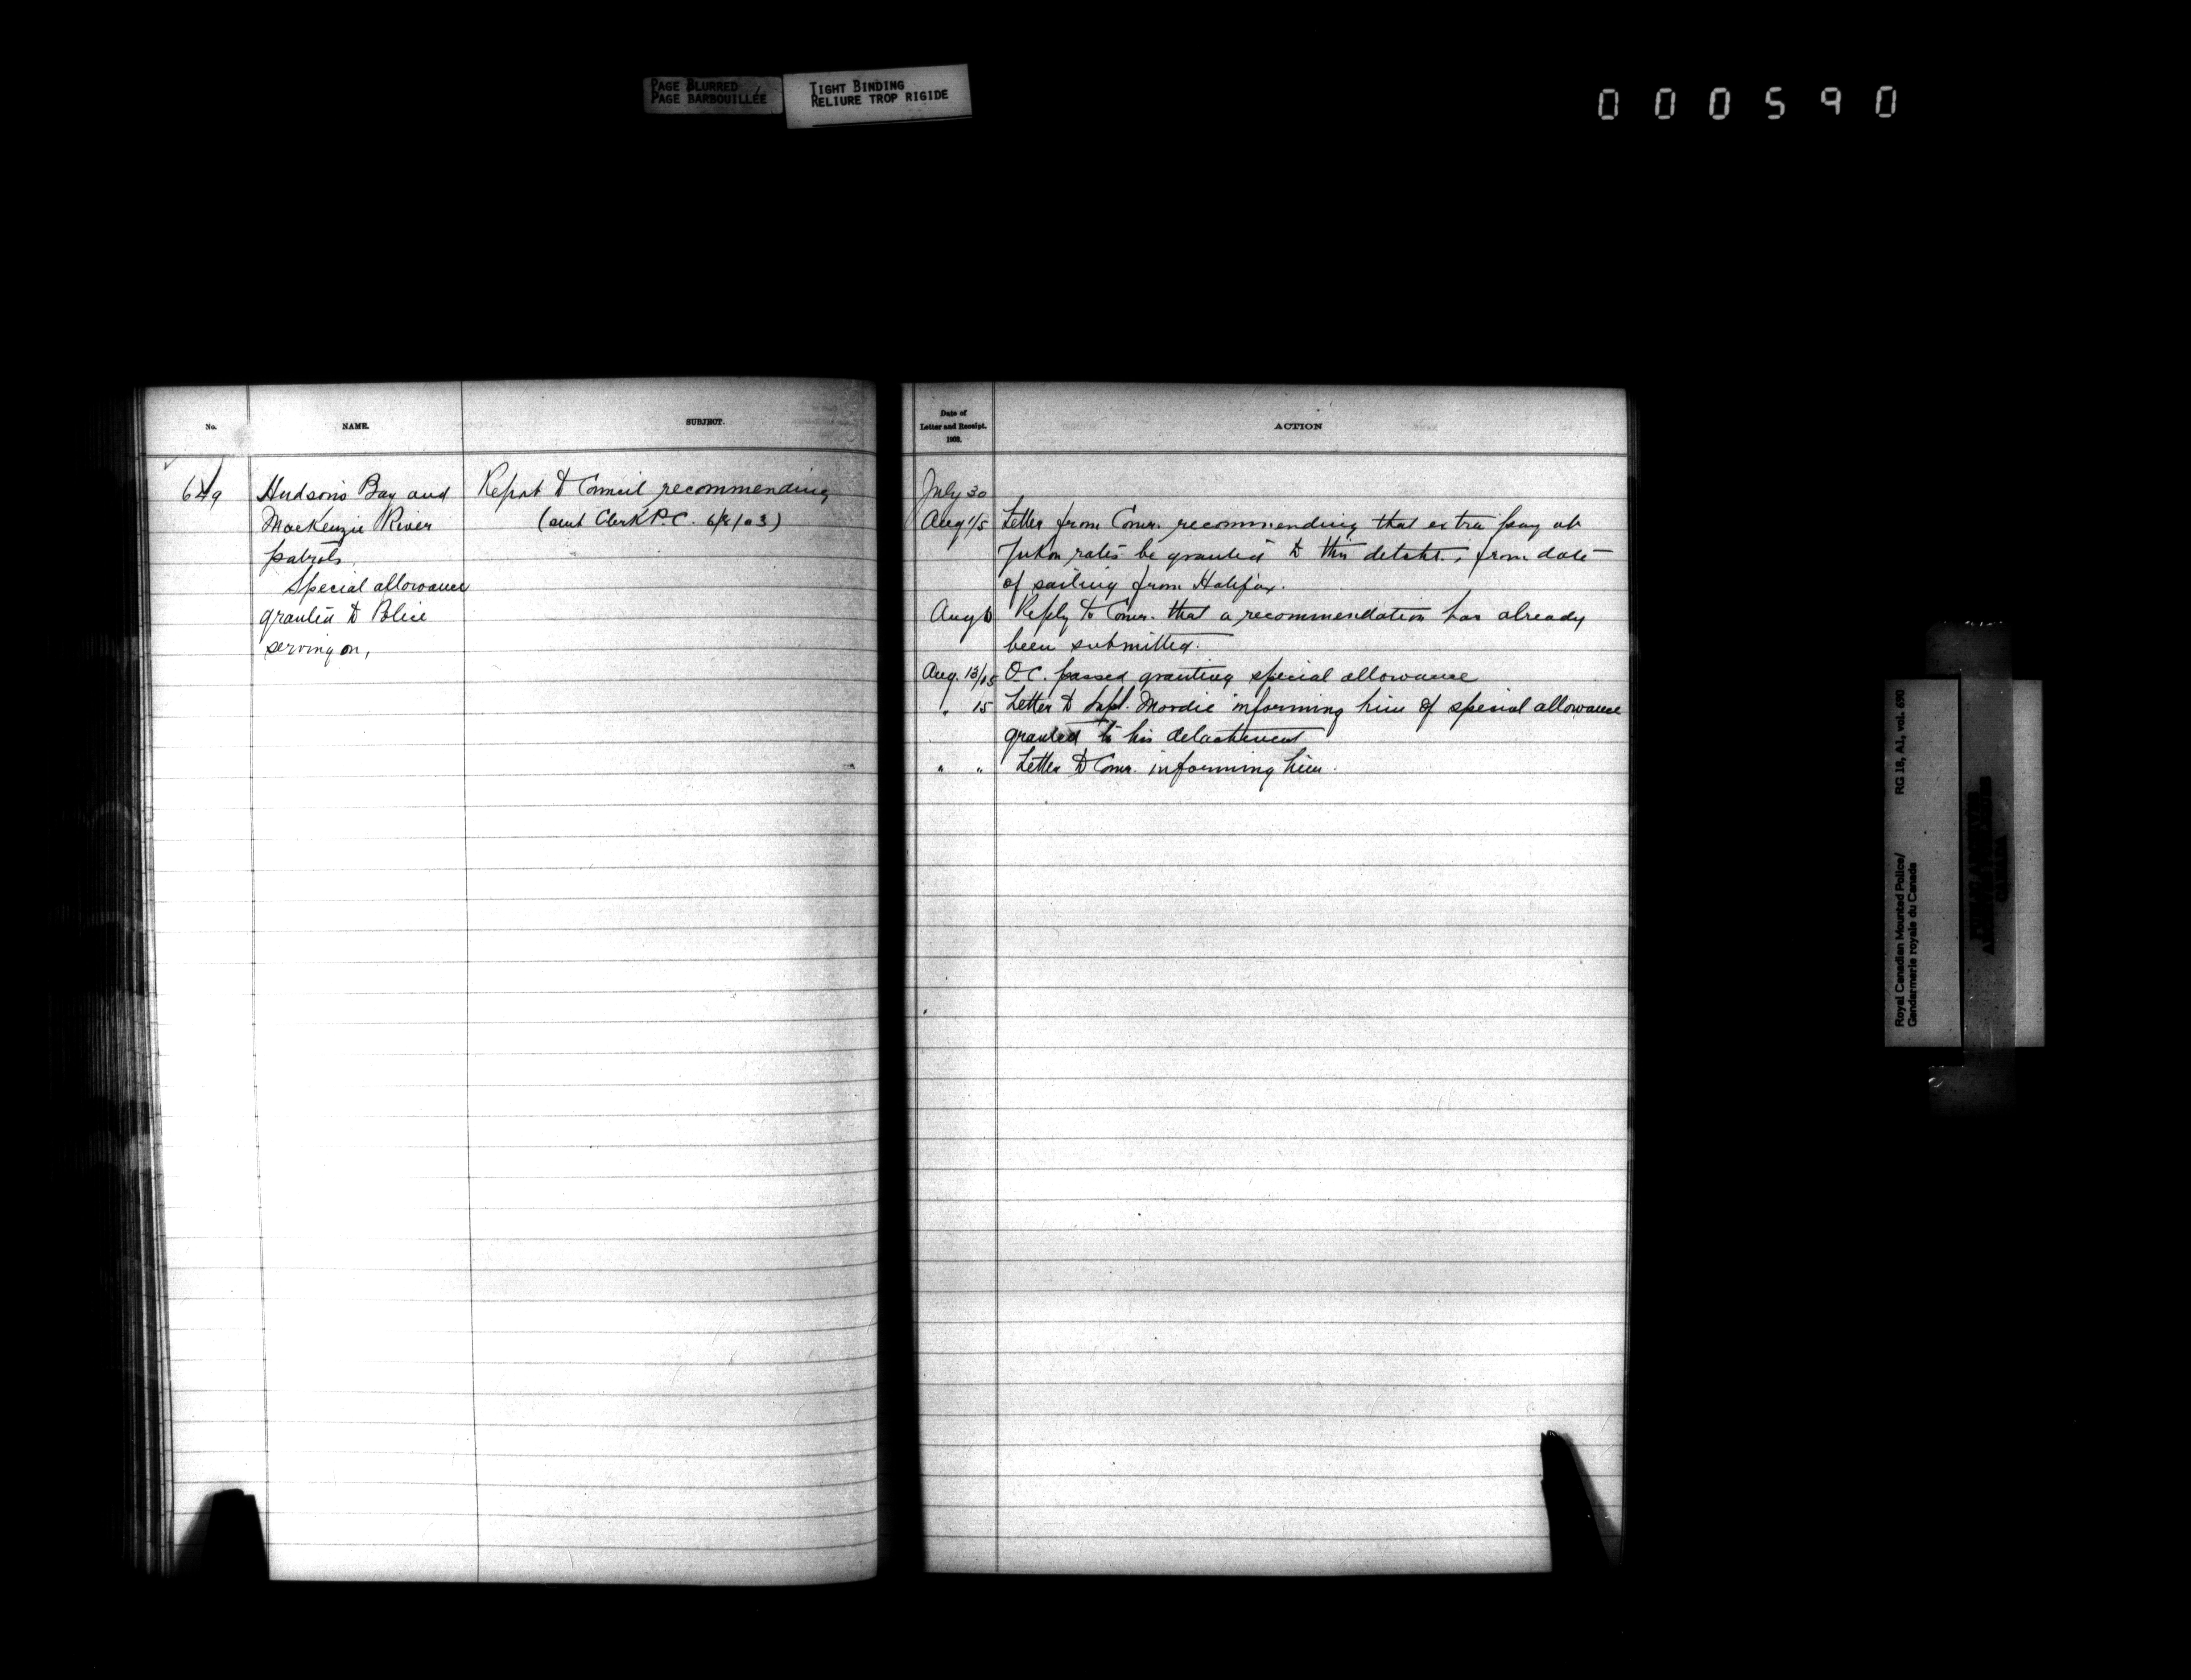 PAGE BLURRED
PAGE BARBOUILLÉE
TIGHT BINDING
RELIURE TROP RIGIDE
000590
No.
NAME.
SUBJECT.
649
Hudson's Bay and
MacKenzie River
patrols.
Special allowance
granted to Police
serving on,
Report to Council recommending
(sent Clerk P.C. 6/8/03)
Date of
Letter and Receipt.
1903.
ACTION
July 30
Aug 1/5 Letter from Comr. recommending that extra pay at
Yukon rates be granted to this detcht., from date
of sailing from Halifax.
Aug 6 Reply to Comr. that a recommendation has already
been submitted.
Aug. 13/15 O.C. passed granting special allowance
" 15 Letter to Supt. Moodie informing him of special allowance
granted to his detachment
" " Letter to Comr. informing him.
RG 18, A1, vol. 690
Royal Canadian Mounted Police/
Gendarmerie royale du Canada